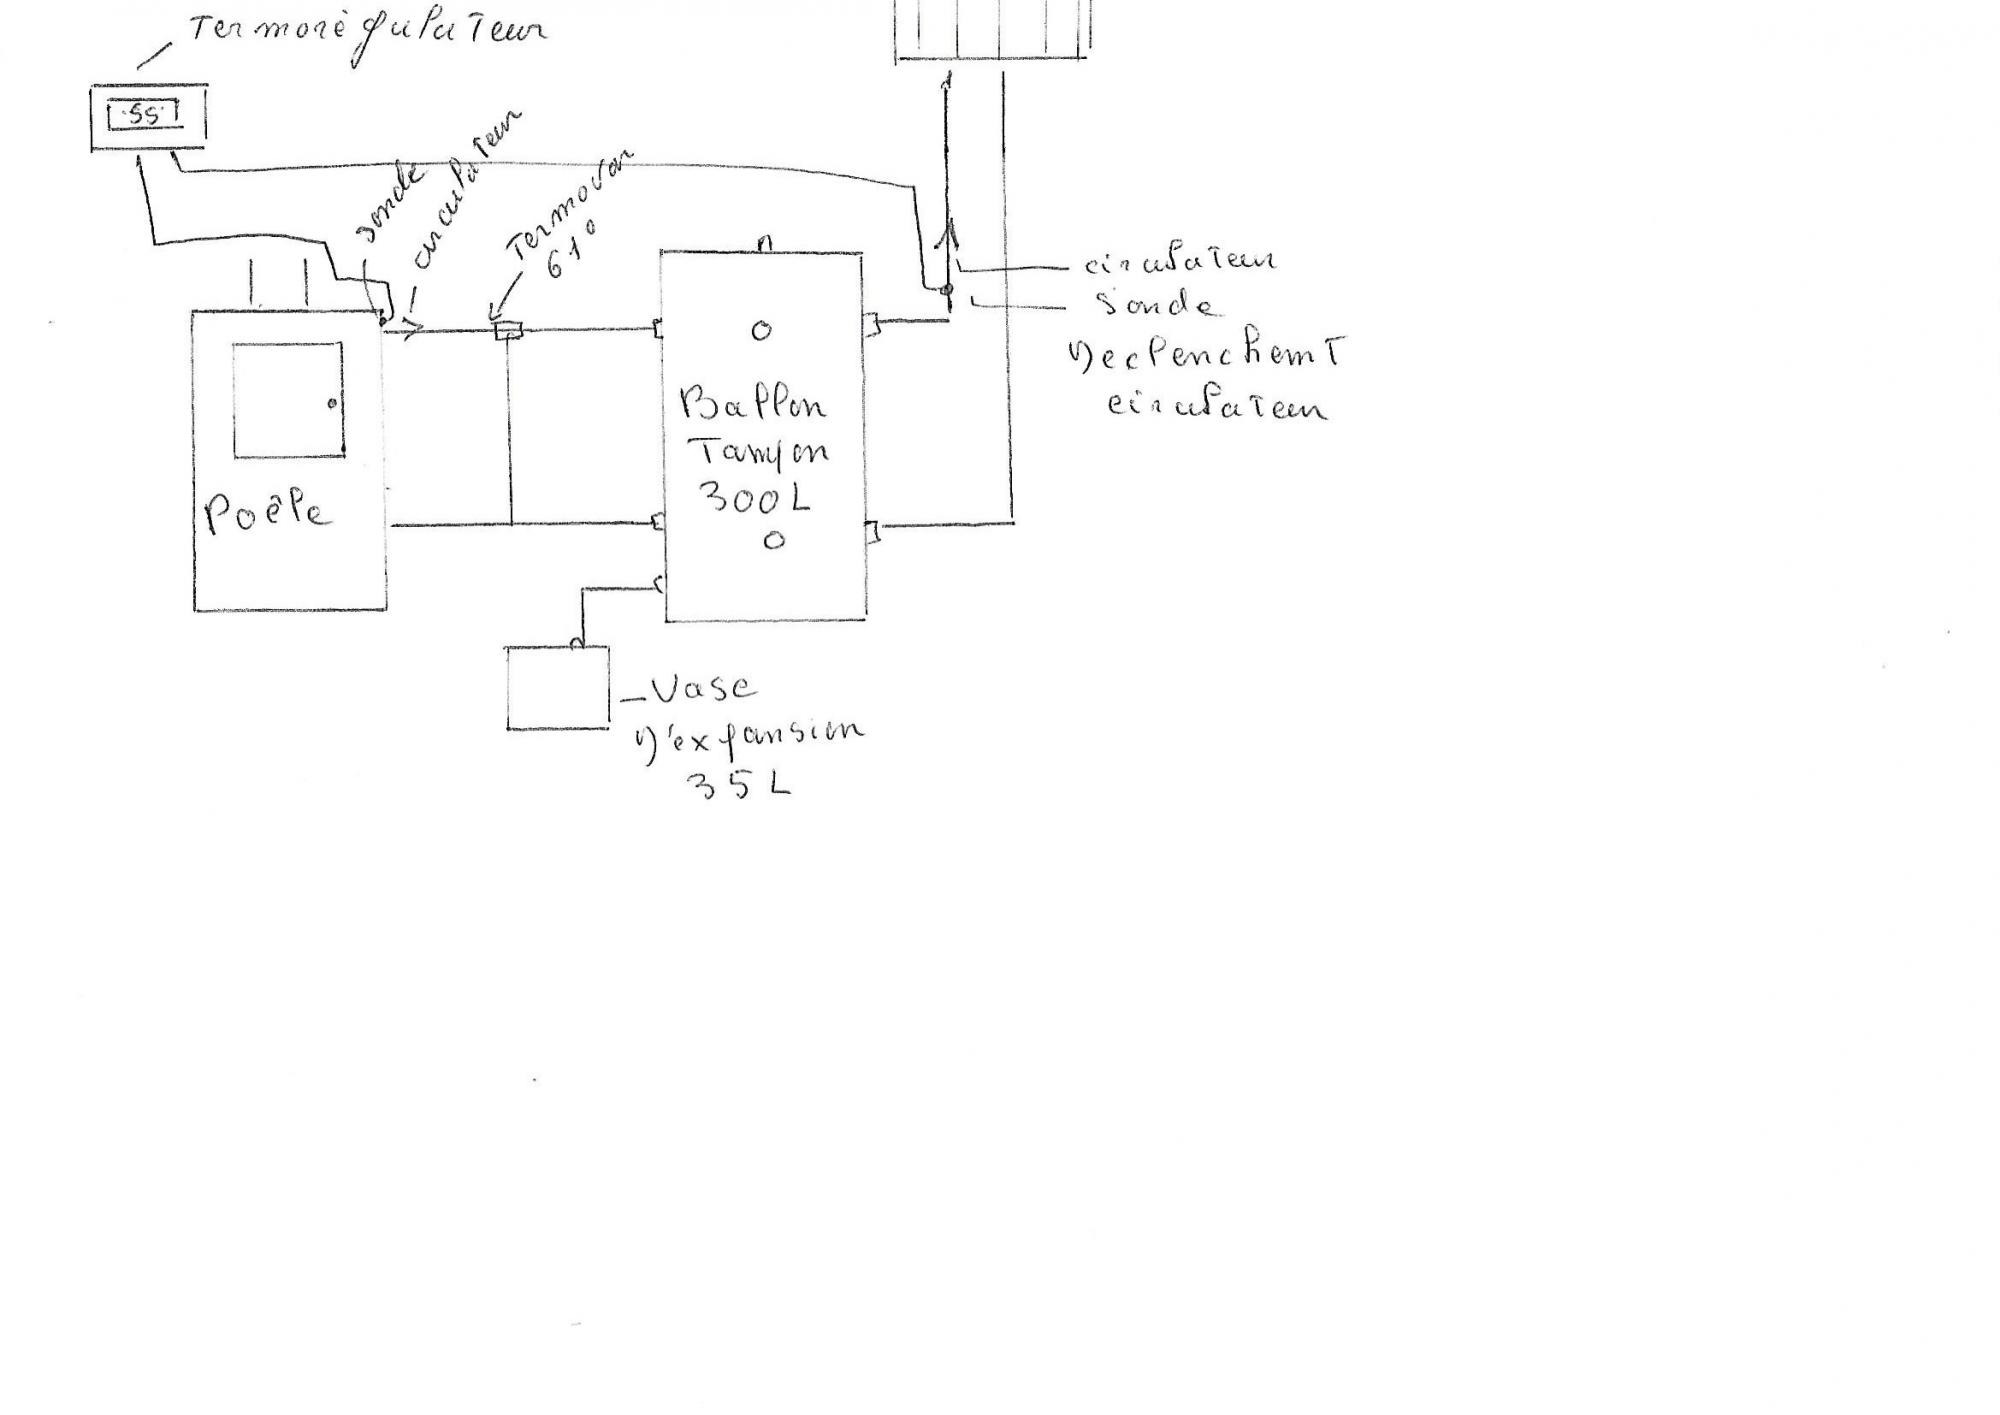 Termorégulateur
55
sonde
circulateur
Termovar
61°
circulateur
sonde
Déclenchemt
circulateur
Ballon
Tampon
300L
Poêle
Vase
D'expansion
35L